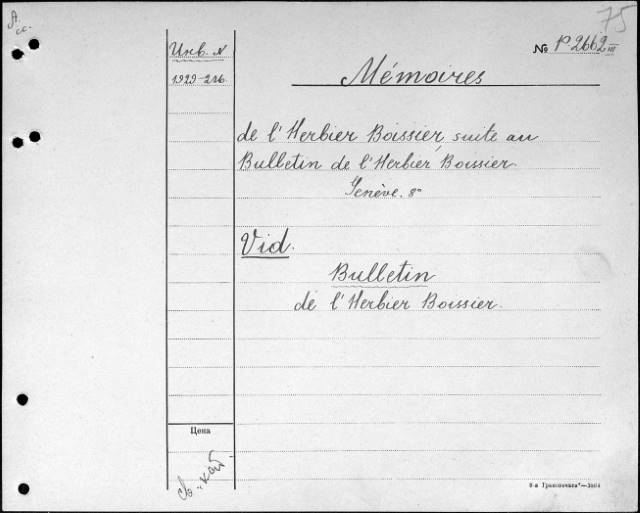 75
A.
№ P-2662 III
Инв. №
1929-216.
Mémoires
de l'Herbier Boissier, suite au
Bulletin de l'Herbier Boissier.
Genève. 8°
Vid.
Bulletin
de l'Herbier Boissier.
Цена